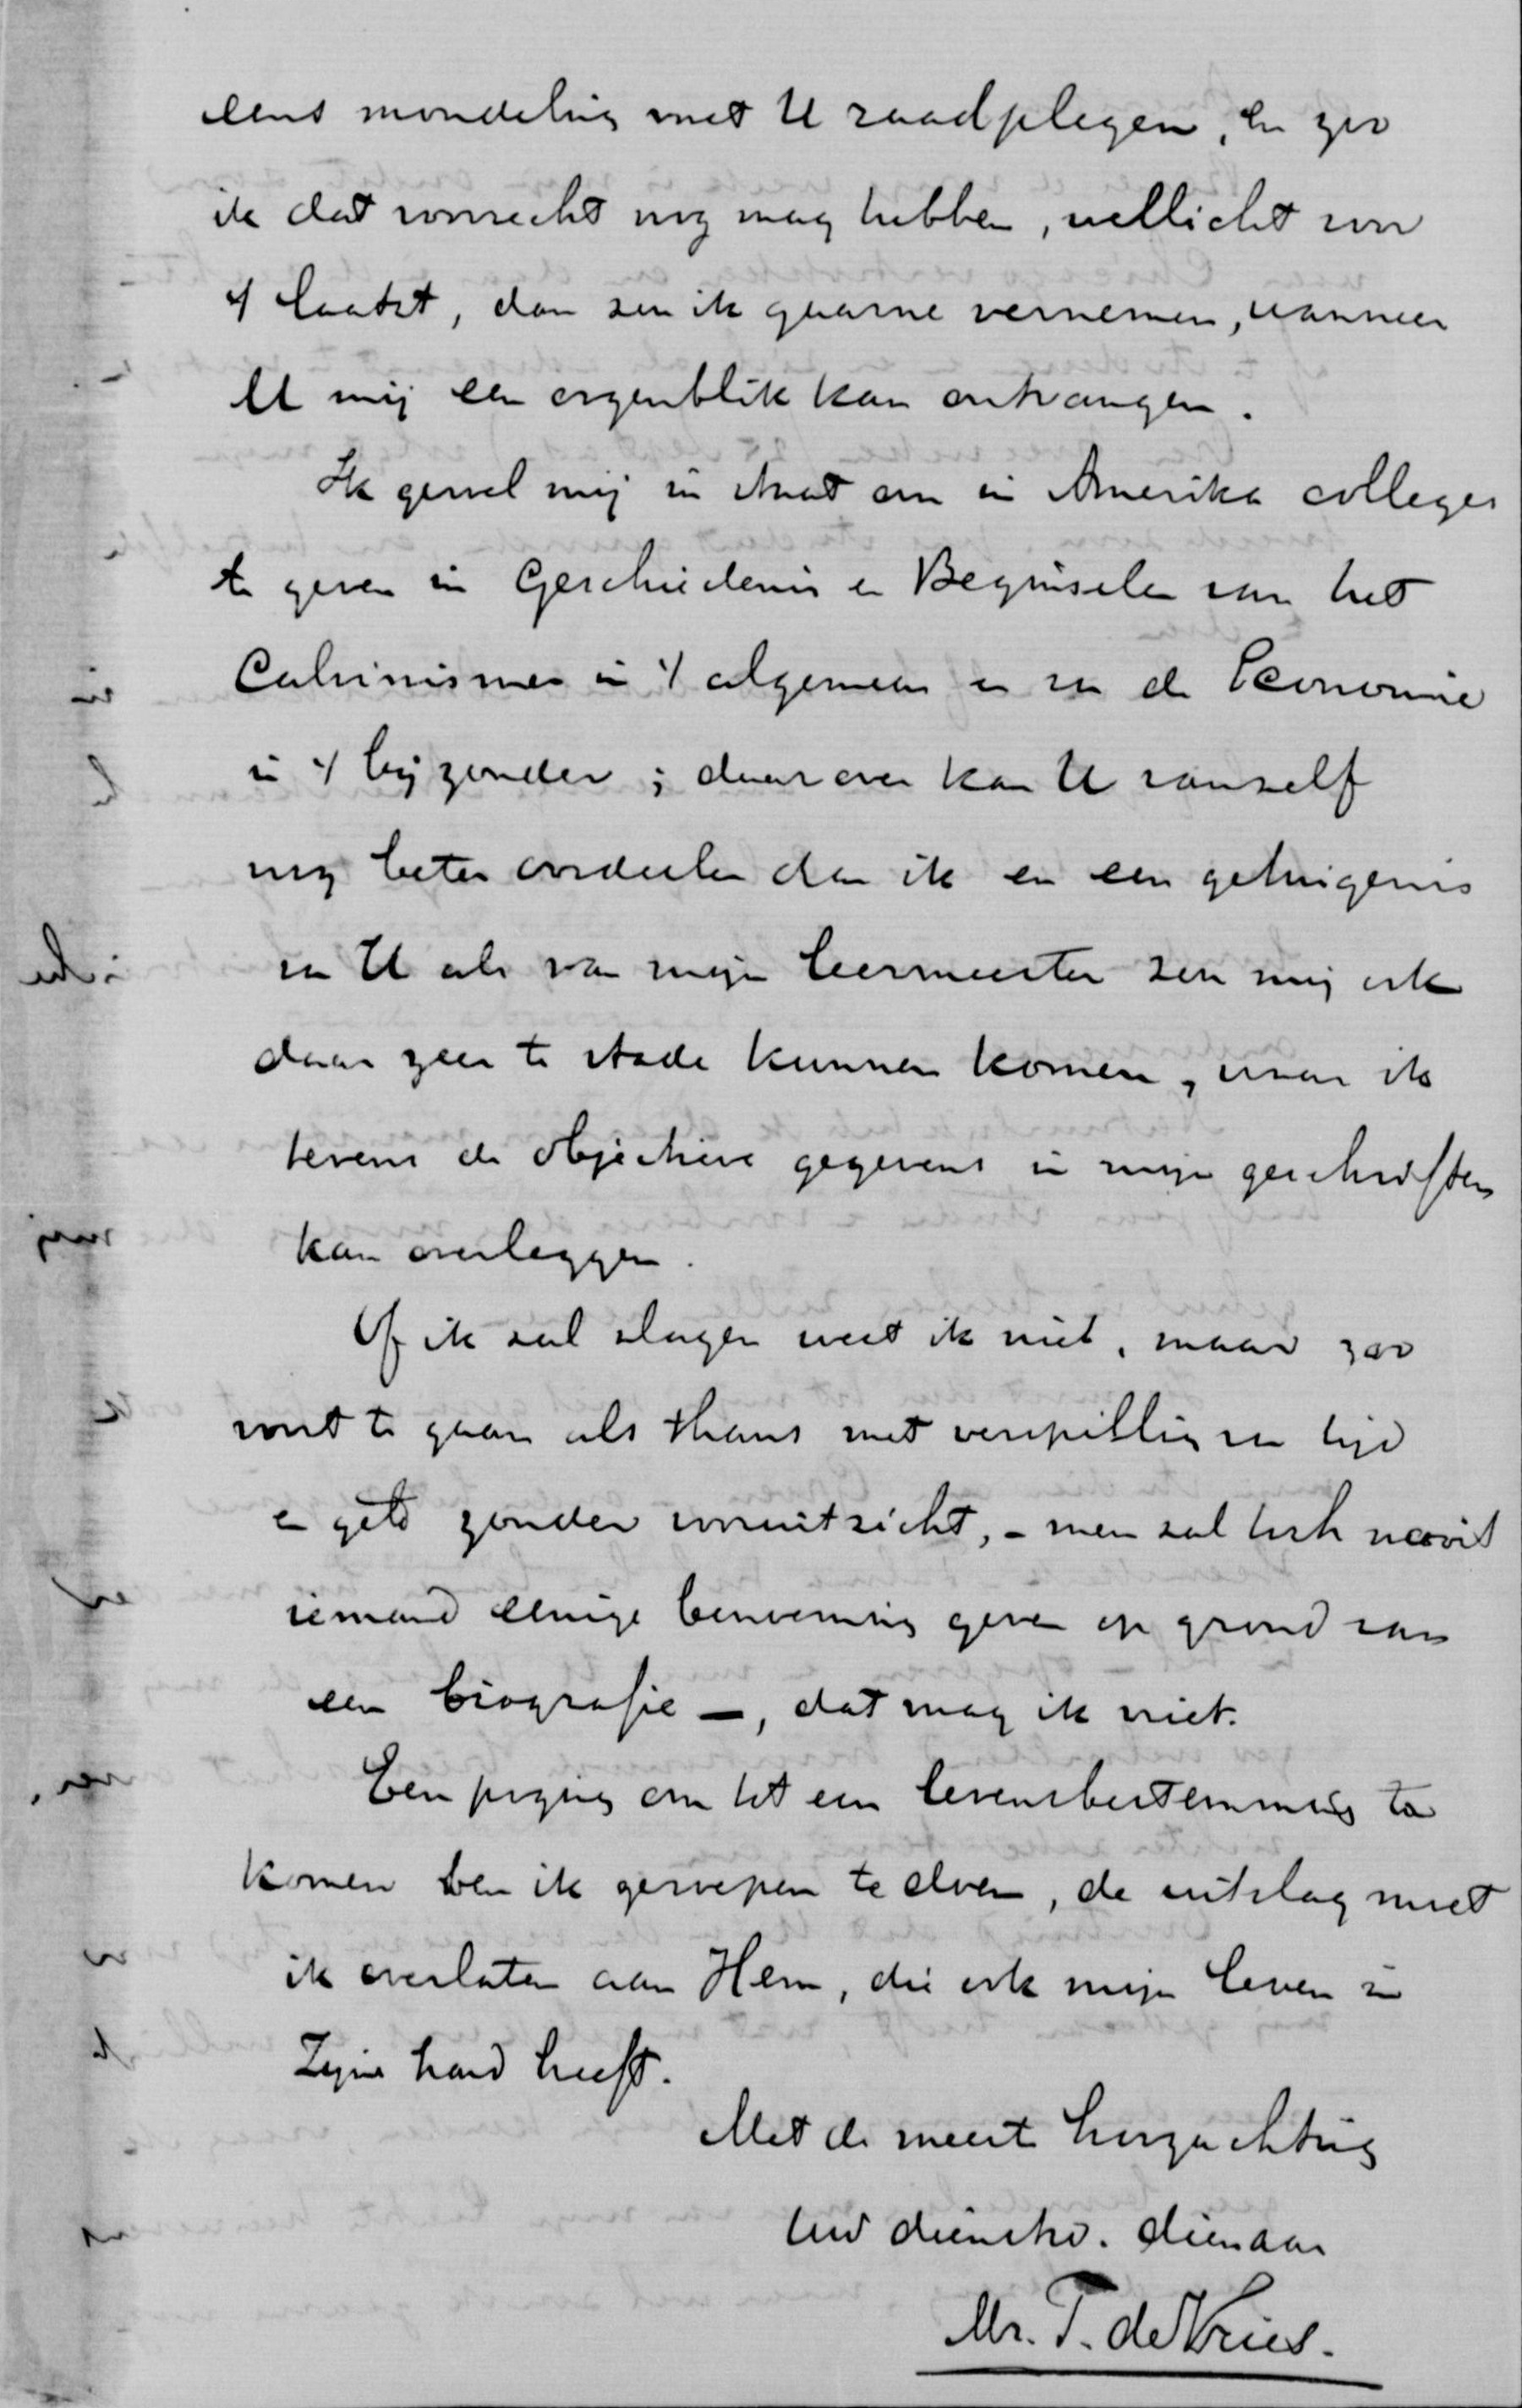 eens mondeling met U raadplegen, en zoo
ik dat voorrecht nog mag hebben, wellicht voor
't laatst, dan zou ik gaarne vernemen, wanneer
U mij een oogenblik kan ontvangen.
Ik gevoel mij in staat om in Amerika colleges
te geven in Geschiedenis en Beginselen van het
Calvinisme in 't algemeen en van de Economie
in 't bijzonder; daarover kan U vanzelf
nog beter oordeelen dan ik en een getuigenis
van U als van mijn leermeester zou mij ook
daar zeer te stade kunnen komen, waar ik
tevens de objectieve gegevens in mijn geschriften
kan overleggen.
Of ik zal slagen weet ik niet, maar zoo
voort te gaan als thans met verspilling van tijd
en geld zonder vooruitzicht, - men zal toch nooit
iemand eenige benoeming geven op grond van
een biografie -, dat mag ik niet.
Een poging om tot een levensbestemming te
komen ben ik geroepen te doen, de uitslag moet
ik overlaten aan Hem, die ook mijn leven in
Zijne hand heeft.
Met de meeste hoogachting
Uw dienstw. dienaar
Mr. T. de Vries.